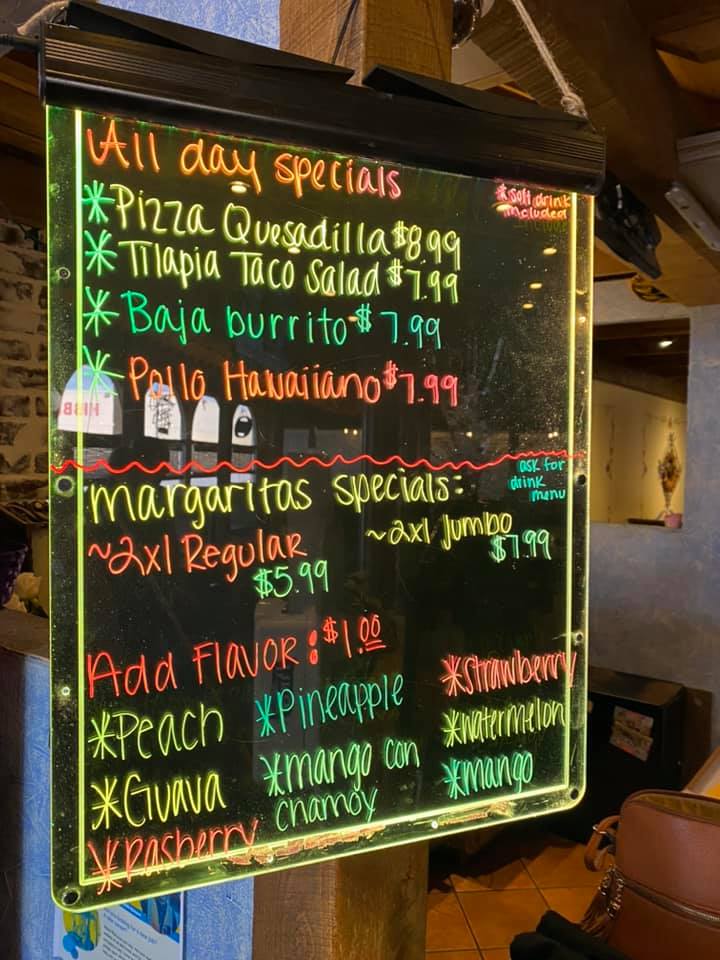 All day specials
*soft drink
included
*Pizza Quesadilla $8.99
*Tilapia Taco Salad $7.99
*Baja burrito $7.99
*Pollo Hawaiiano $7.99
margaritas specials:
ask for
drink
menu
~2x1 Regular
$5.99
~2x1 Jumbo
$7.99
Add Flavor: $1.00
*Peach
*Pineapple
*Strawberry
*Guava
*mango con
chamoy
*watermelon
*mango
*Rasberry